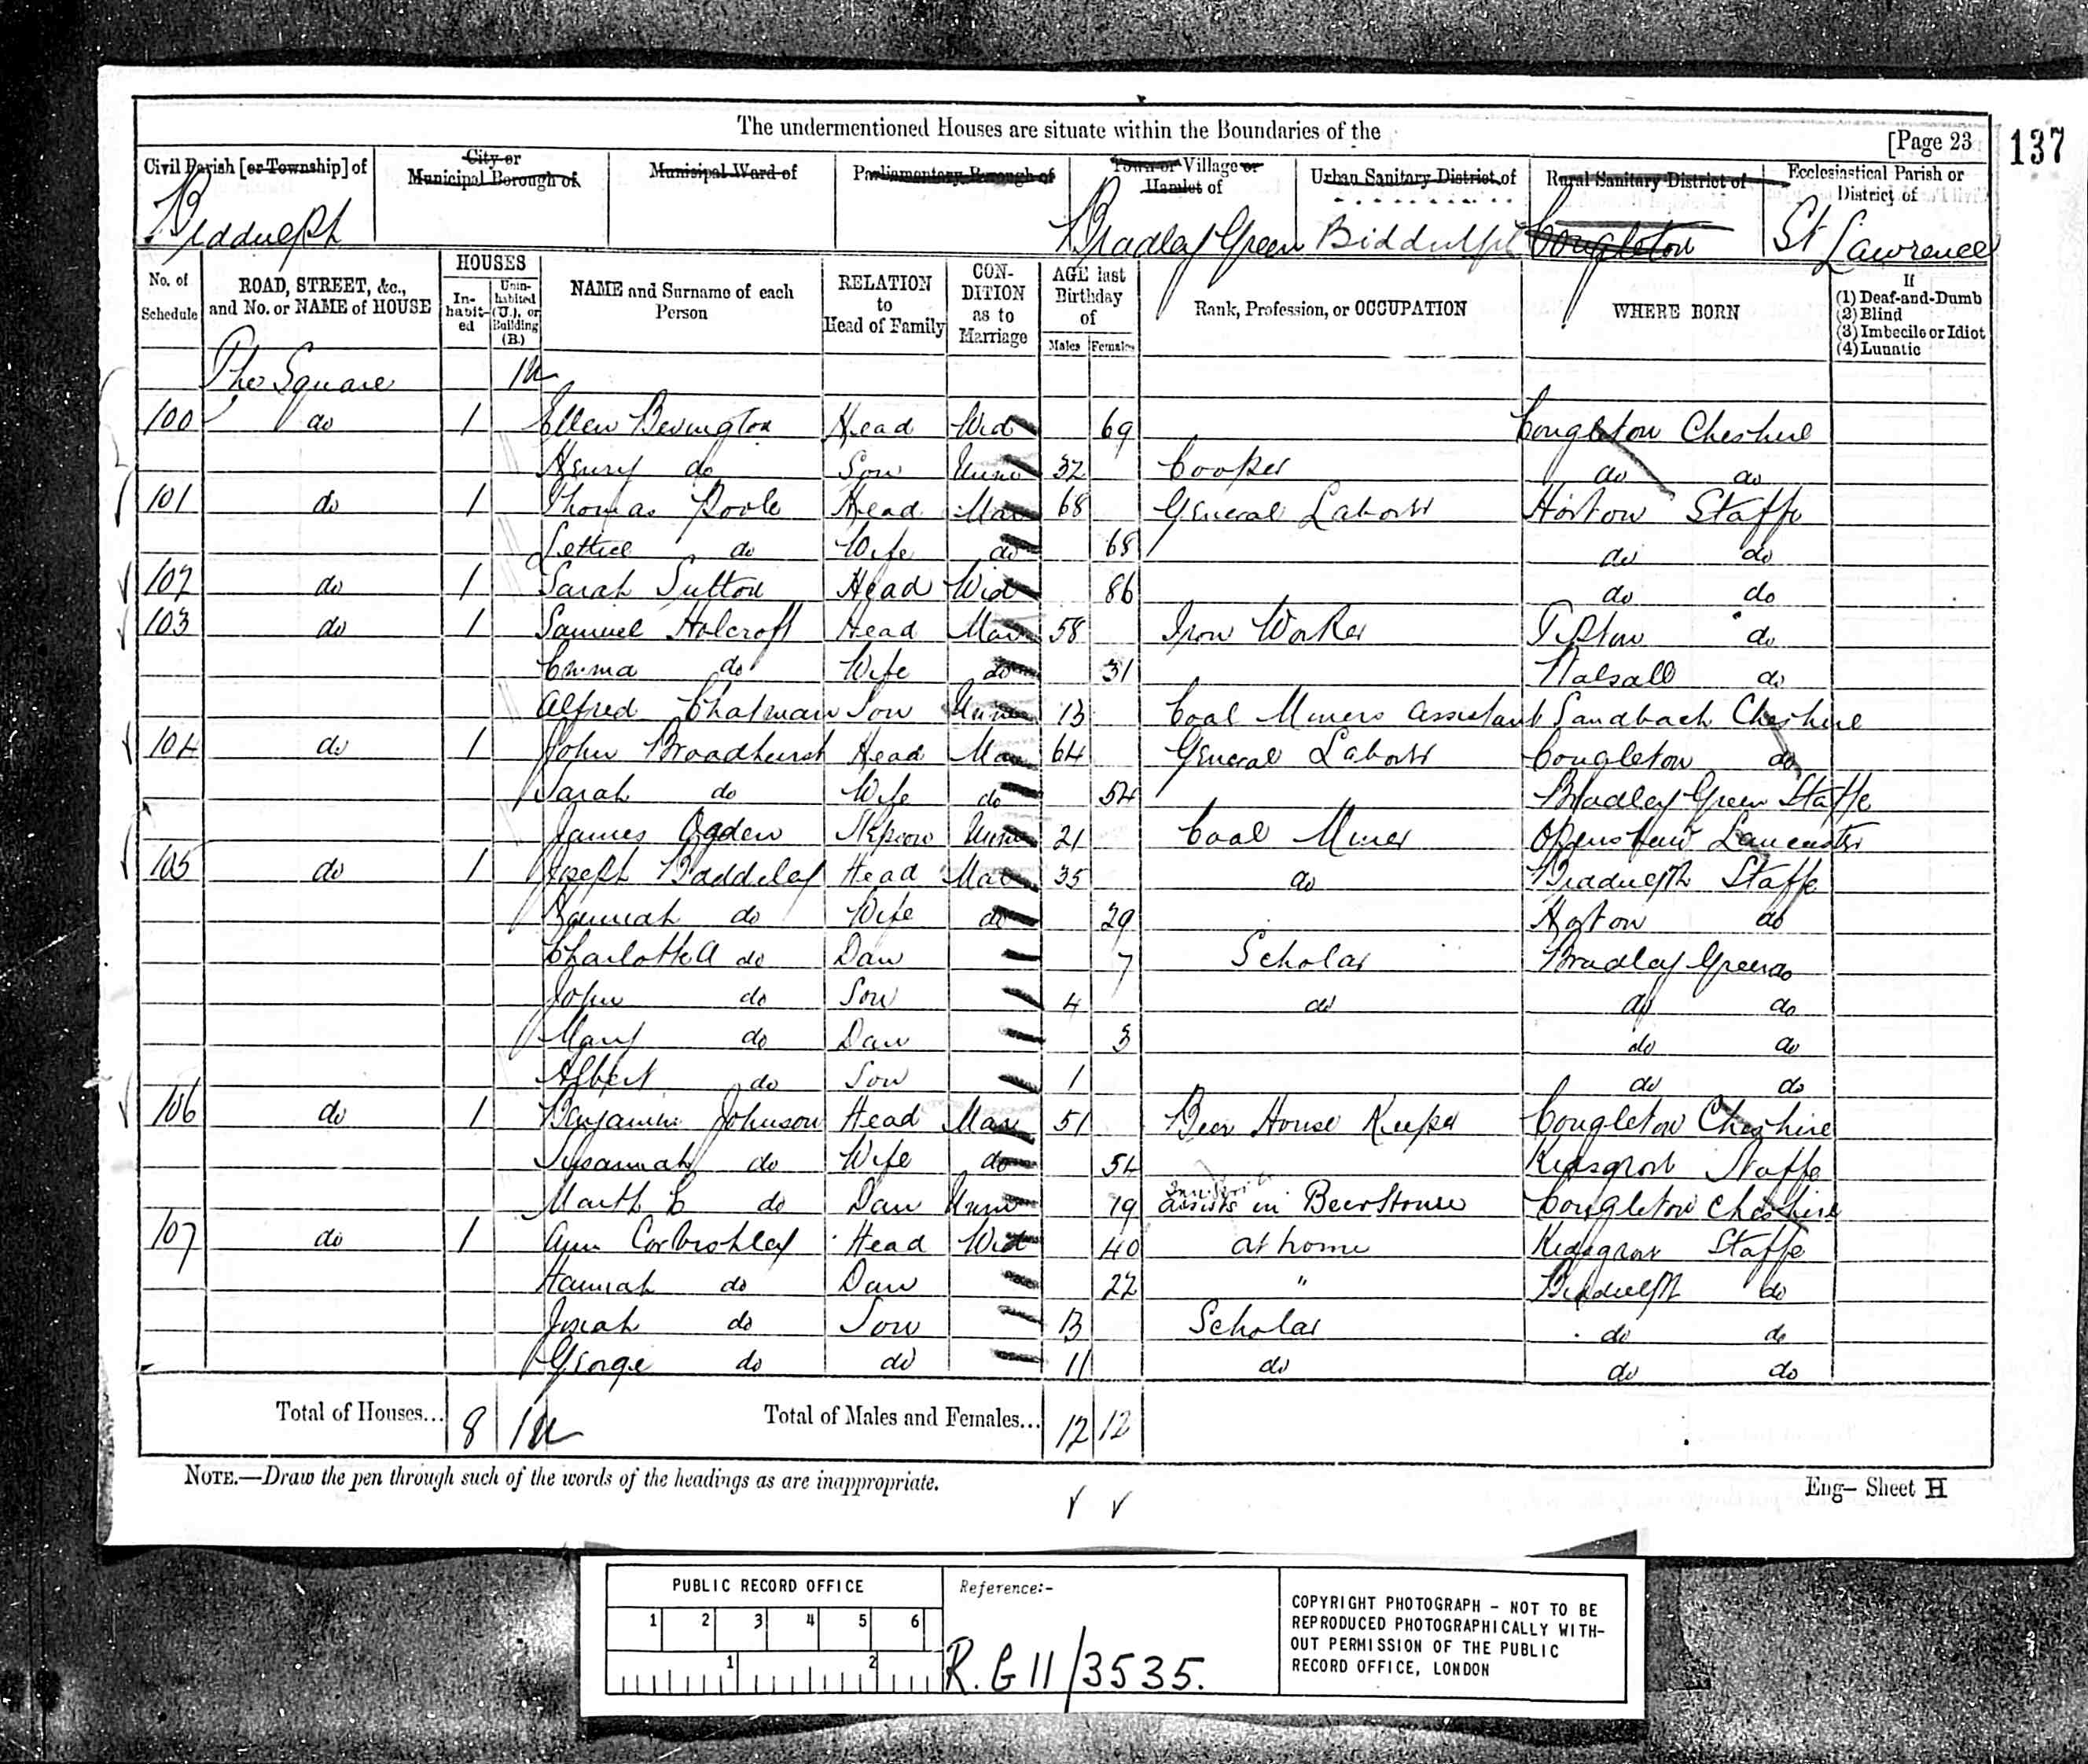 The undermentioned Houses are situate within the Boundaries of the
[Page 23
137
Civil Parish [or Township] of
City or Municipal Borough of
Municipal Ward of
Parliamentary Borough of
Town or Village or Hamlet of
Urban Sanitary District of
Rural Sanitary District of
Ecclesiastical Parish or District of
Biddulph
Bradley Green
Biddulph
Congleton
St Lawrence
No. of Schedule
ROAD, STREET, &c., and No. or NAME of HOUSE
HOUSES
In-habit-ed
Unin-habited (U.), or Building (B.)
NAME and Surname of each Person
RELATION to Head of Family
CON-DITION as to Marriage
AGE last Birthday of
Males Females
Rank, Profession, or OCCUPATION
WHERE BORN
If
(1) Deaf-and-Dumb
(2) Blind
(3) Imbecile or Idiot
(4) Lunatic
The Square 1u
100 do 1 Ellen Bevington Head Wid 69 Congleton Cheshire
Henry do Son Unm 32 Cooper do do
101 do 1 Thomas Poole Head Mar 68 General Labour Horton Staffs
Lettice do Wife do 68 do do
102 do 1 Sarah Sutton Head Wid 86 do do
103 do 1 Samuel Holcroft Head Mar 58 Iron Worker Tipton do
Emma do Wife do 31 Walsall do
Alfred Chatman Son Unm 13 Coal Miners assistant Sandbach Cheshire
104 do 1 John Broadhurst Head Mar 64 General Labour Congleton do
Sarah do Wife do 54 Bradley Green Staffs
James Ogden Unm 21 Coal Miner Openshaw Lancaster
105 do 1 Joseph Baddeley Head Mar 35 do Biddulph Staffs
Hannah do Wife do 29 Horton do
Charlotte A do Dau 7 Scholar Bradley Green do
John do Son 4 do do do
Mary do Dau 3 do do
Albert do Son 1 do do
106 do 1 Benjamin Johnson Head Mar 51 Beer House Keeper Congleton Cheshire
Susannah do Wife do 54 Kidsgrove Staffs
Marth E do Dau Unm 19 assists in Beer House Congleton Cheshire
107 do 1 Ann Corbishley Head Wid 40 at home Kidsgrove Staffs
Hannah do Dau 22 " Biddulph do
Josiah do Son 13 Scholar do do
George do do 11 do do do
Total of Houses... 8 1u Total of Males and Females... 12 12
NOTE.—Draw the pen through such of the words of the headings as are inappropriate.
Eng– Sheet H
PUBLIC RECORD OFFICE
1 2 3 4 5 6
1 2
Reference:-
R.G 11/3535.
COPYRIGHT PHOTOGRAPH – NOT TO BE
REPRODUCED PHOTOGRAPHICALLY WITH-
OUT PERMISSION OF THE PUBLIC
RECORD OFFICE, LONDON